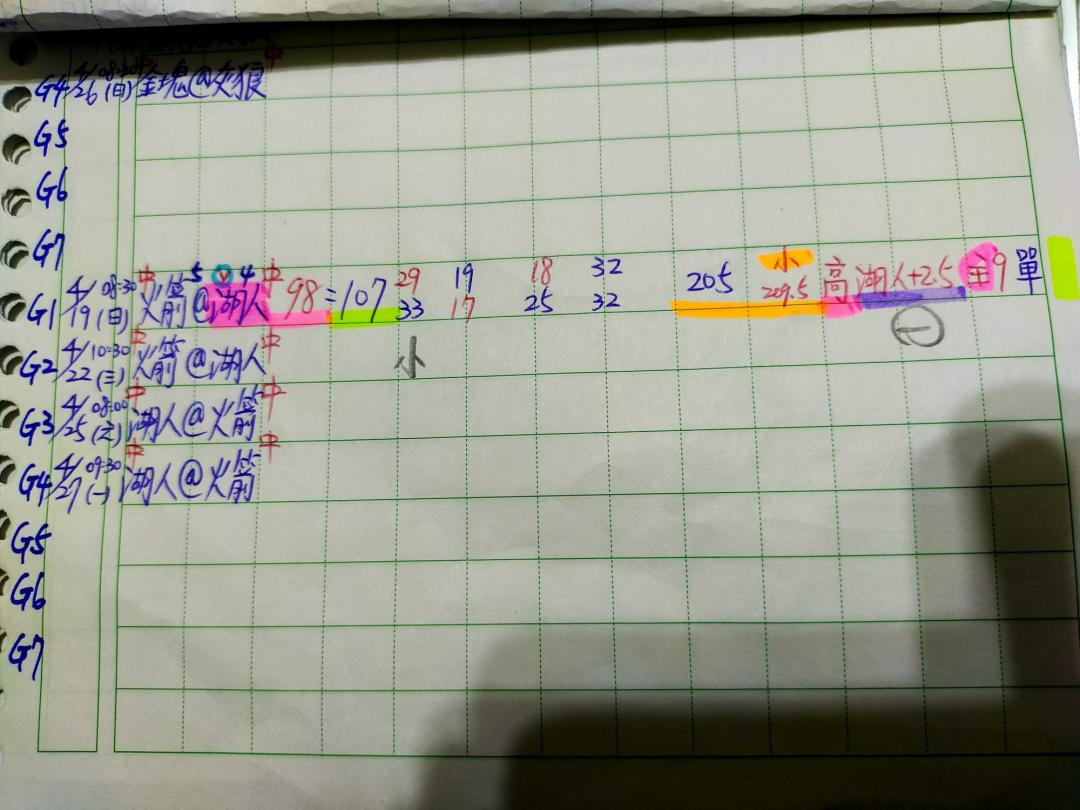 G4 4/26 08:30 (日) 中金塊@灰狼中
G5
G6
G7
G1 4/19 08:30 (日) 中火箭5@v4湖人中 98=107 29 19 18 32 205 小 209.5 高 湖人+2.5 主9 單
33 17 25 32 一
G2 4/22 10:30 (三) 中火箭@湖人中 小
G3 4/25 08:00 (六) 中湖人@火箭中
G4 4/27 09:30 (一) 中湖人@火箭中
G5
G6
G7